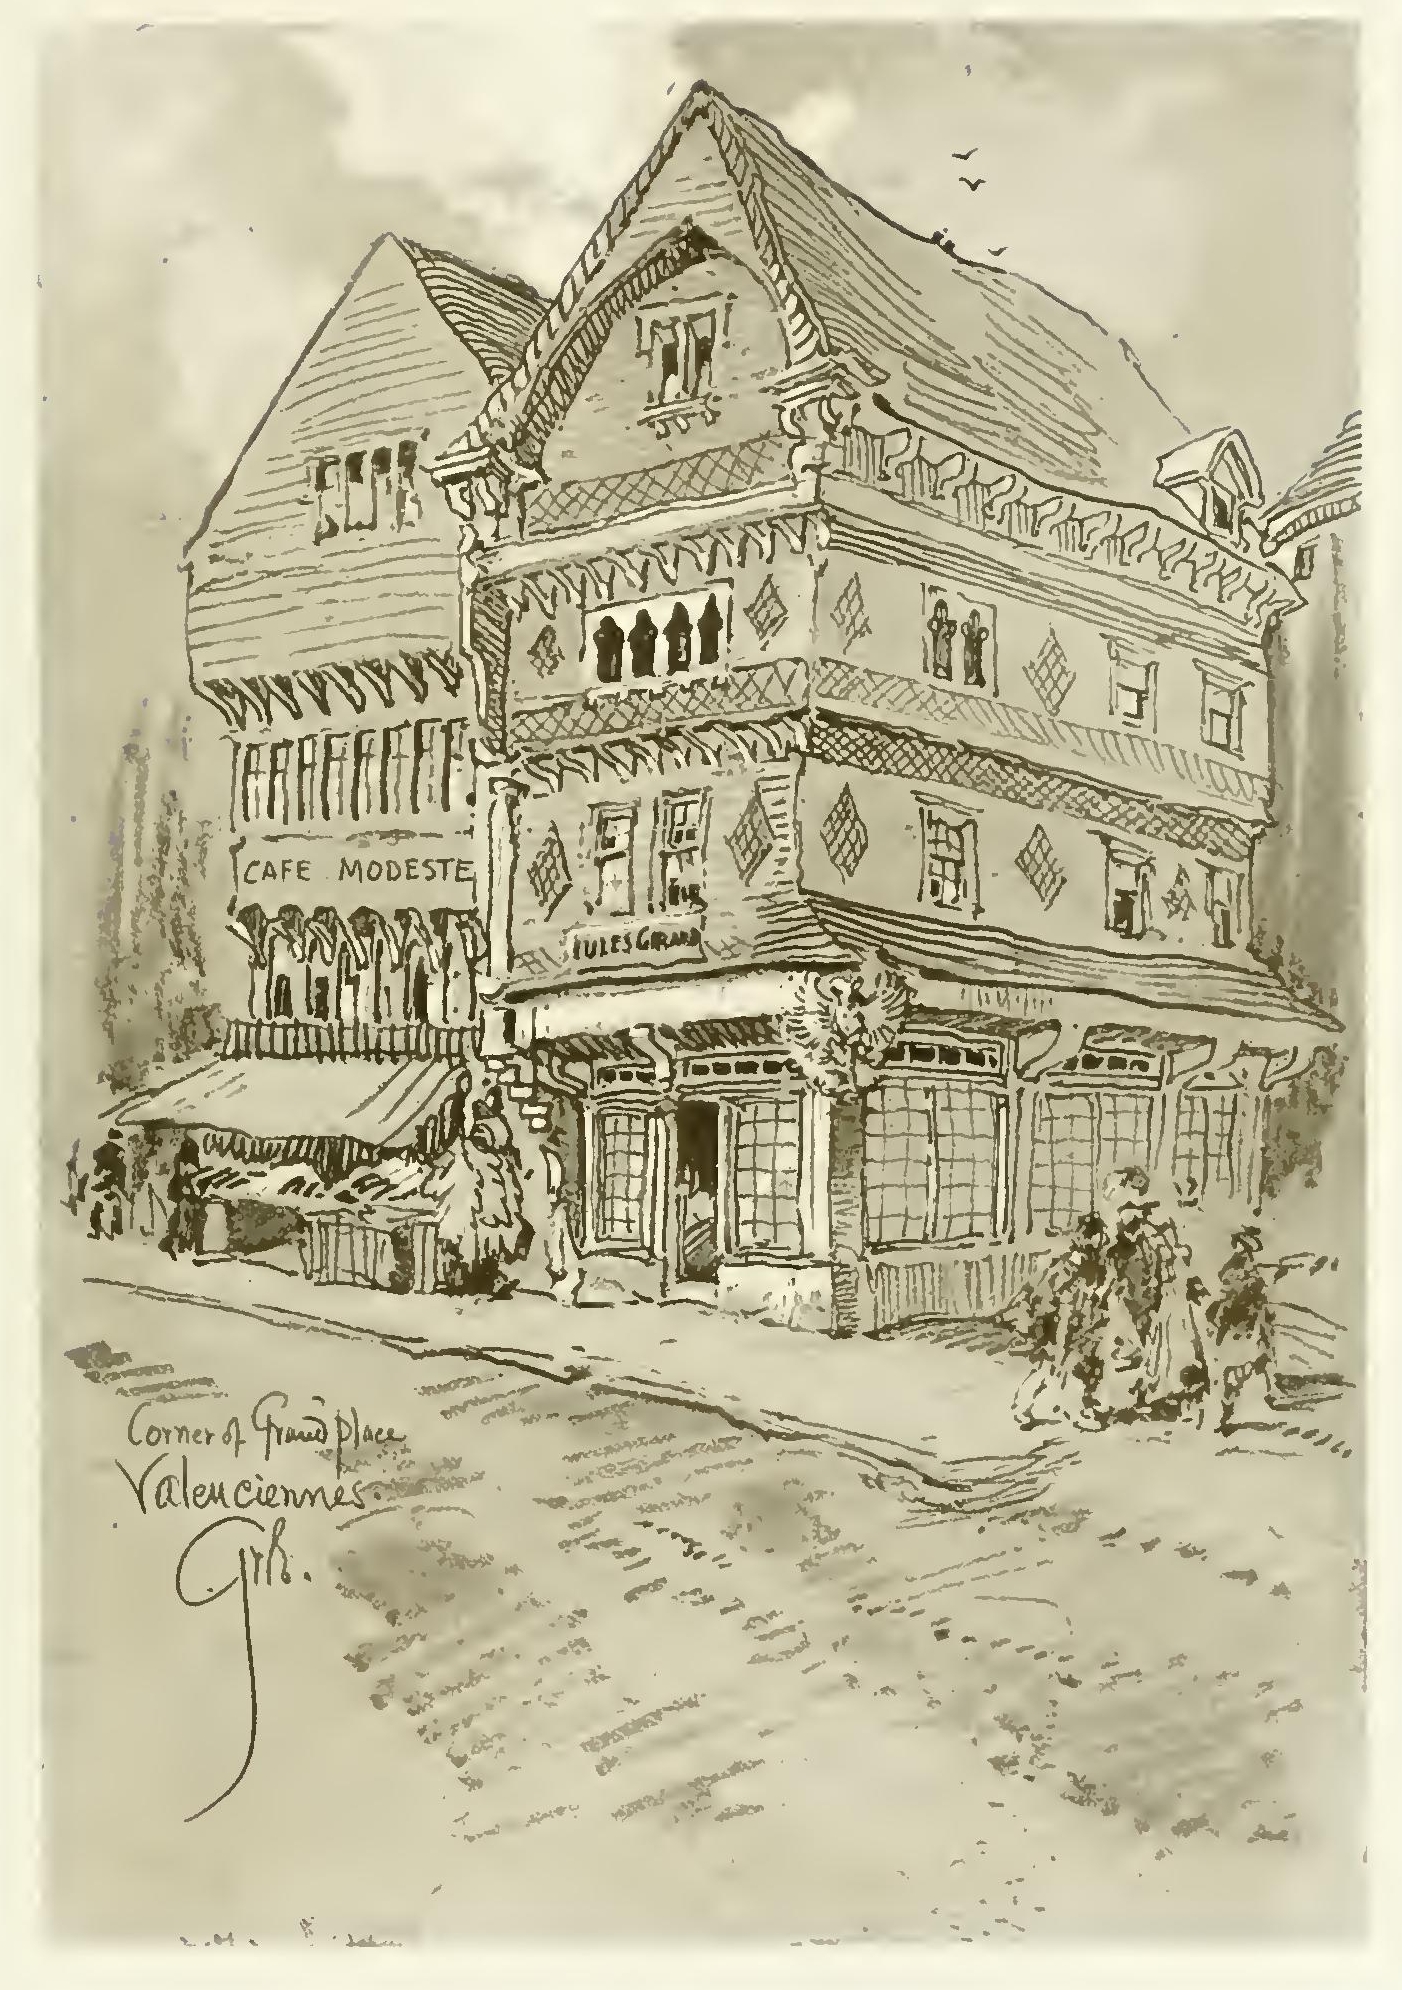 CAFE MODESTE
JULES GIRARD
Corner of Grand Place
Valenciennes.
Grh.